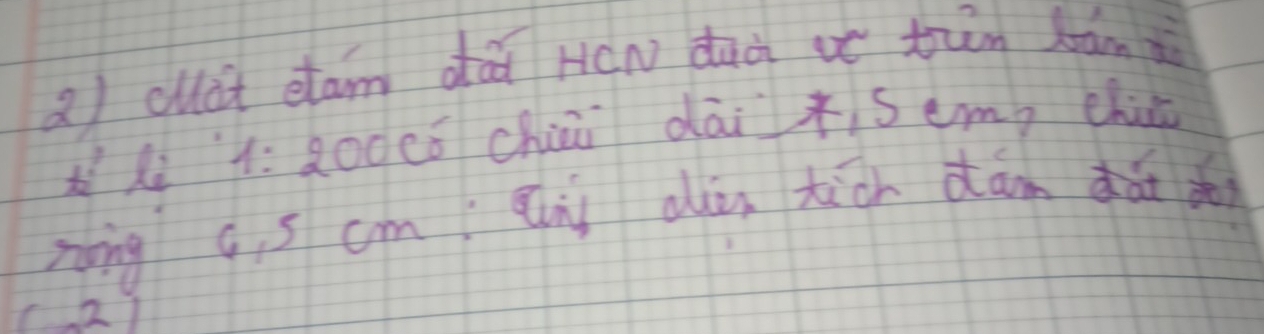 2) Một đám đất HCN được vẽ trên bản đồ
tỉ lệ 1: 200 có chiều dài 7,5 cm, chiều
rộng 6,5 cm. Tính diện tích đám đất đó?
(m²)